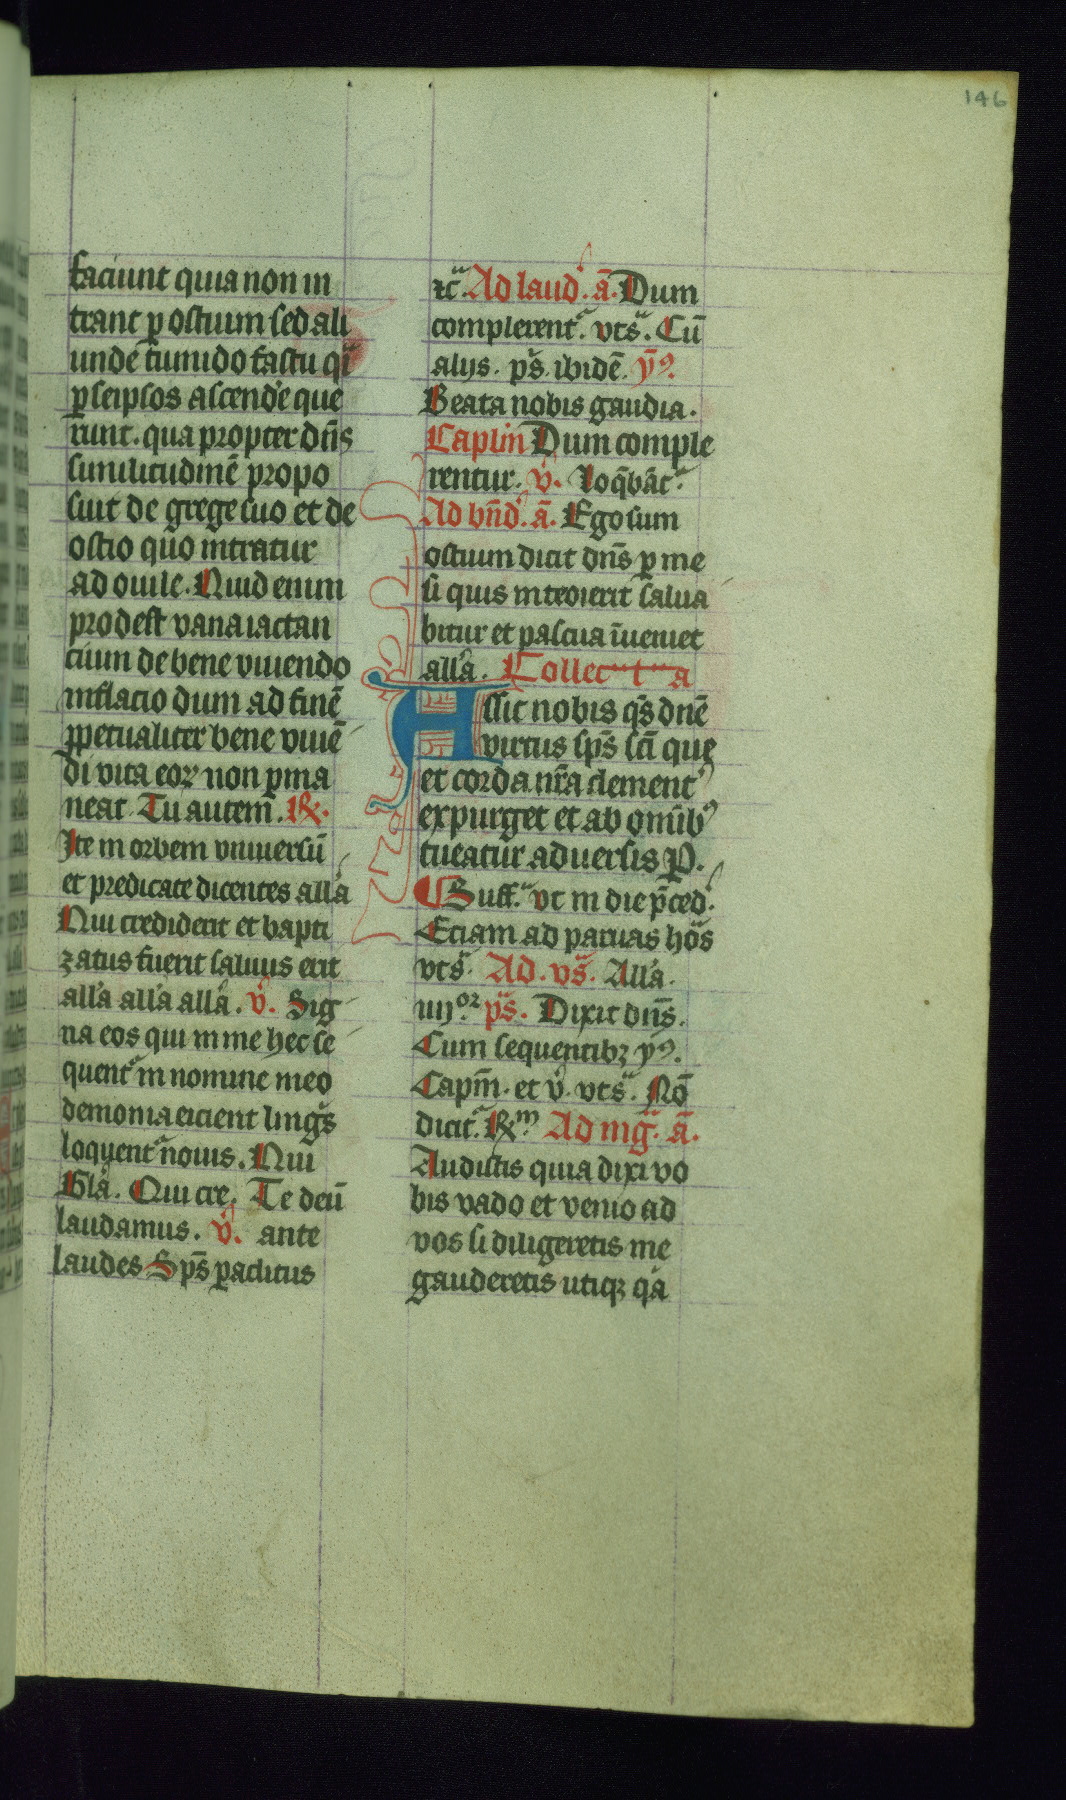 146
faciunt quia non in
trant ꝑ ostium sed ali
unde tumido fastu qͥ
ꝑ seipsos ascendˀe que
runt. qua propter dn̄s
similitudinē propo
suit de grege suo et de
ostio quo intratur
ad ouile. Quid enim
prodest vana iactan
cium de bene viuendo
inflacio dum ad finē
ꝑpetualiter bene viuē
di vita eoꝝ non ꝑma
neat. Tu autem. ℟.
Ite in orbem vniuersū
et predicate dicentes all'a
Qui crediderit et bapti
zatus fuerit saluus erit
all'a all'a all'a. v̓. Sig
na eos qui in me hec se
quentᵃ in nomine meo
demonia eicient lingᵃs
loquentᵃ nouis. Qui
Gl'a. Qui cre. Te deū
laudamus. v̓. ante
laudes Sp̄s ꝑaclitus
ꝛcᵃ. Ad laud'. ā. Dum
complerentᵃ. vtsᵃ. Cū
alijs. pˢ. ibidē. ẏꝯ.
Beata nobis gaudia.
Caplm Dum comple
rentur. v̓. Loq̄bātᵃ.
Ad bn̄d'. ā. Ego sum
ostium dicit dn̄s ꝑ me
si quis introierit salua
bitur et pascua īueniet
all'a. Collecta
Assit nobis qˢ dn̄e
virtus sp̄s sc̄i que
et corda nr̄a clementˀ
expurget et ab om̄ibꝯ
tueatur aduersis P.
Suff.ᵃ vt in die p̄ced'.
Eciam ad paruas horˢ
vtsᵃ. Ad. vs̄. All'a.
iiijᵒʳ. pˢ. Dixit dn̄s.
Cum sequentibꝫ yꝯ.
Capm̄. et v̓. vtsᵃ. Nō
dicitᵃ. ℟ᵐ. Ad mgᵃ. ā.
Audistis quia dixi vo
bis vado et venio ad
vos si diligeretis me
gauderetis utiqꝫ qᵃ